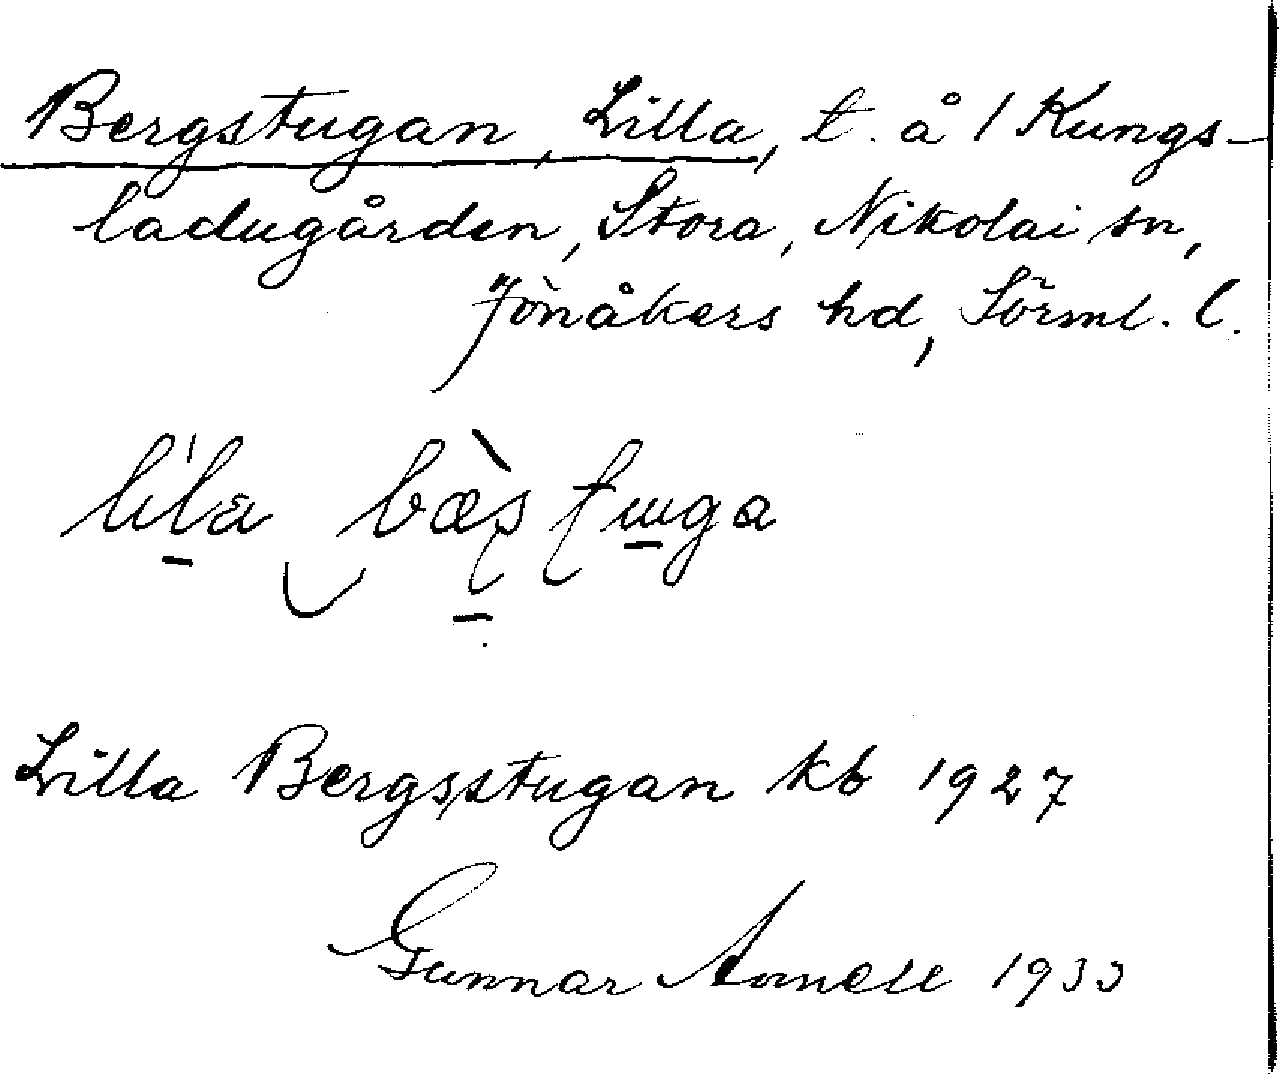 Bergstugan, Lilla, t. å 1 Kungs-
ladugården, Stora, Nikolai sn,
Jönåkers hd, Sörml. l.
Lilla Bergsstugan kb 1927
Gunnar 1933